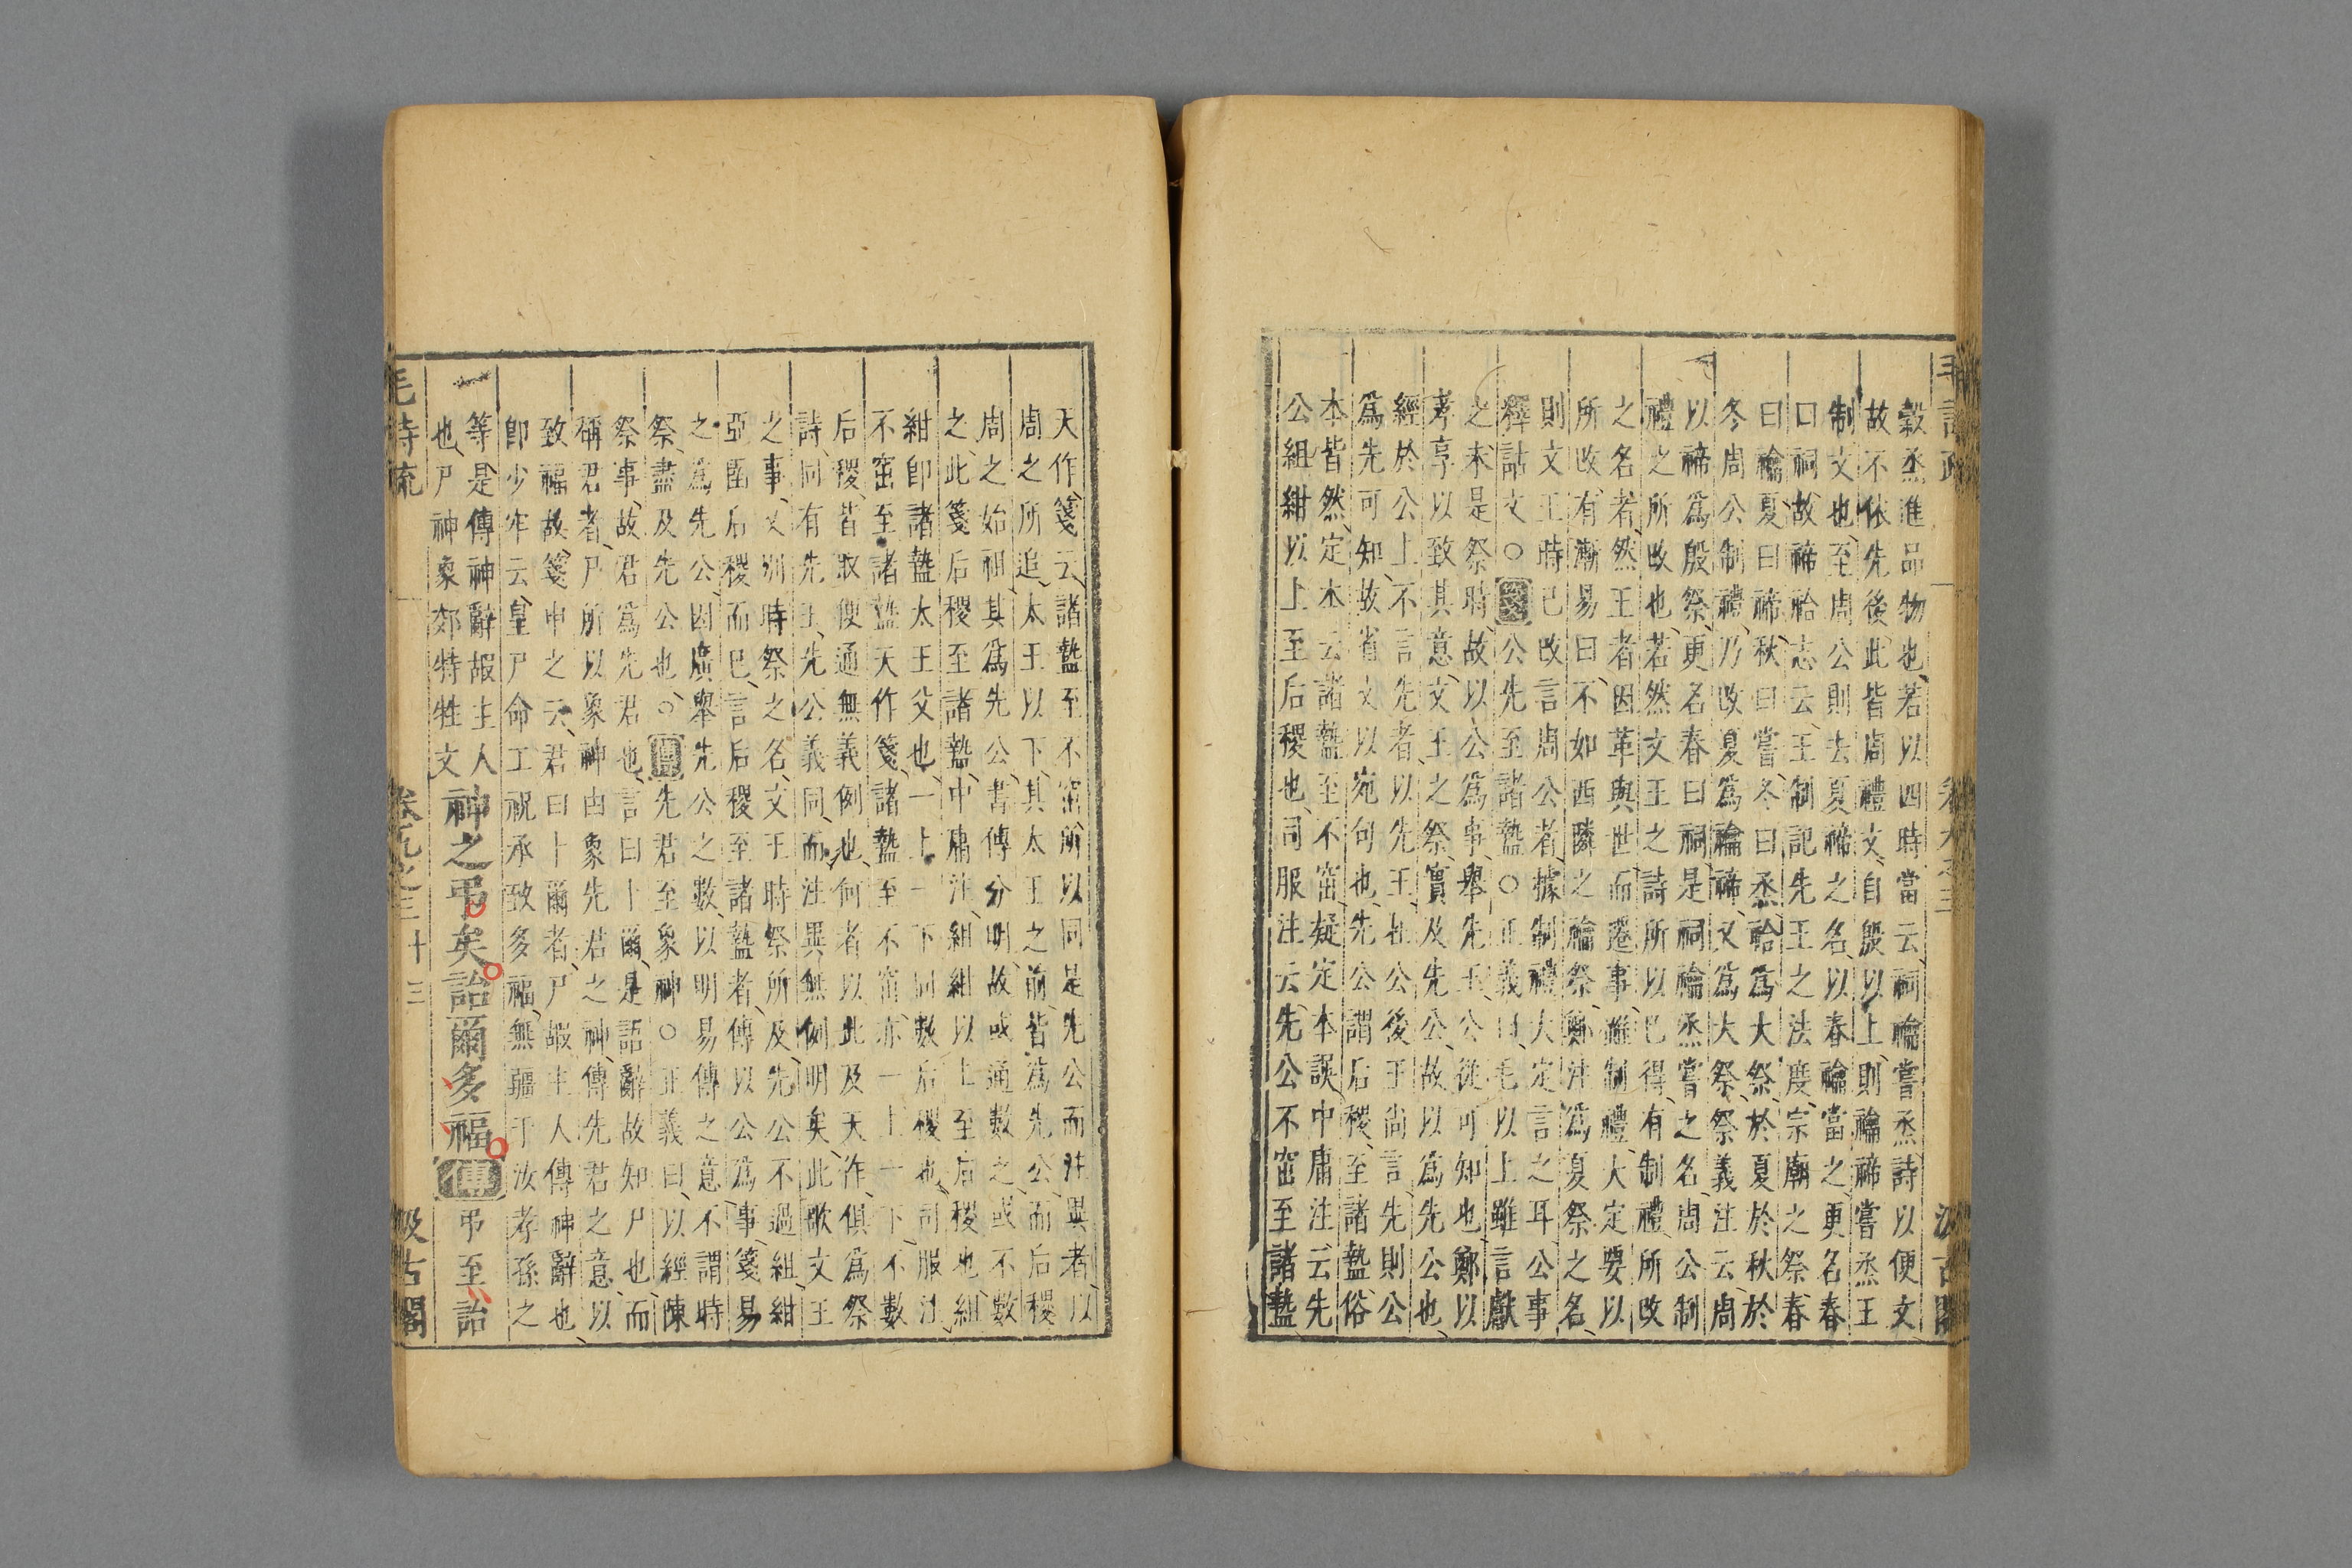 毛詩疏
卷九之三
汲古閣
穀烝進品物也若以四時當云祠禴嘗烝詩以便文
故不依先後此皆周禮文自殷以上則禴禘嘗烝王
制文也至周公則去夏禘之名以春禴當之更名春
曰祠故禘祫志云王制記先王之法度宗廟之祭春
曰禴夏曰禘秋曰嘗冬曰烝祫爲大祭於夏於秋於
冬周公制禮乃改夏爲禴禘又爲大祭祭義注云周
以禘爲殷祭更名春曰祠是祠禴烝嘗之名周公制
禮之所改也若然文王之詩所以已得有制禮所改
之名者然王者因革與世而遷事雖制禮大定要以
所改有漸易曰不如西隣之禴祭鄭注爲夏祭之名
則文王時已改言周公者據制禮大定言之耳公事
釋詁文○箋公先至諸盩○正義曰毛以上雖言獻
之未是祭時故以公爲事舉先王公從可知也鄭以
孝享以致其意文王之祭實及先公故以爲先公也
經於公上不言先者以先王在公後王尚言先則公
爲先可知故省文以宛句也先公謂后稷至諸盩俗
本皆然定本云諸盩至不窋疑定本誤中庸注云先
公組紺以上至后稷也司服注云先公不窋至諸盩
天作箋云諸盩至不窋所以同是先公而注異者以
周之所追太王以下其太王之前皆爲先公而后稷
周之始祖其爲先公書傳分明故或通數之或不數
之此箋后稷至諸盩中庸注組紺以上至后稷也組
紺卽諸盩太王父也一上一下同數后稷也司服注
不窋至諸盩天作箋諸盩至不窋亦一上一下不數
后稷皆取便通無義例也何者以此及天作俱爲祭
詩同有先王先公義同而注異無例明矣此歌文王
之事又別時祭之名文王時祭所及先公不過組紺
亞圉后稷而已言后稷至諸盩者傳以公爲事箋易
之爲先公因廣舉先公之數以明易傳之意不謂時
祭盡及先公也○傳先君至象神○正義曰以經陳
祭事故君爲先君也言曰卜爾是語辭故知尸也而
稱君者尸所以象神由象先君之神傳先君之意以
致福故箋申之云君曰卜爾者尸嘏主人傳神辭也
卽少牢云皇尸命工祝承致多福無疆于汝孝孫之
等是傳神辭嘏主人
也尸神象郊特牲文
神之弔矣詒爾多福傳弔至詒
毛詩疏
卷九之三
十三
汲古閣